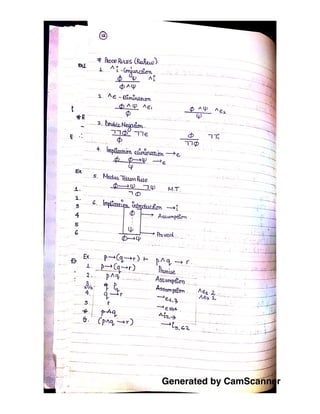 * PROOF RULES (Review)
1. ∧i - Conjunction
ϕ ψ ∧i
ϕ∧ψ
2. ∧e - elimination
ϕ∧ψ ∧e₁ ϕ∧ψ ∧e₂
ϕ ψ
3. Double Negation
¬¬ϕ ¬¬e ϕ ¬¬i
ϕ ¬¬ϕ
4. Implication elimination →e
ϕ ϕ→ψ →e
ψ
5. Modus Tollens Rule
ϕ→ψ ¬ψ MT
¬ϕ
6. Implication introduction →i
ϕ → Assumption
ψ → Proved
ϕ→ψ
Ex p→(q→r) ⊢ p∧q → r
1. p→(q→r) Premise
2. p∧q Assumption
3. p Assumption ∧e₁ 2
4. q→r →e 1,3
5 r
p∧q
8. (p∧q → r)
Generated by CamScanner